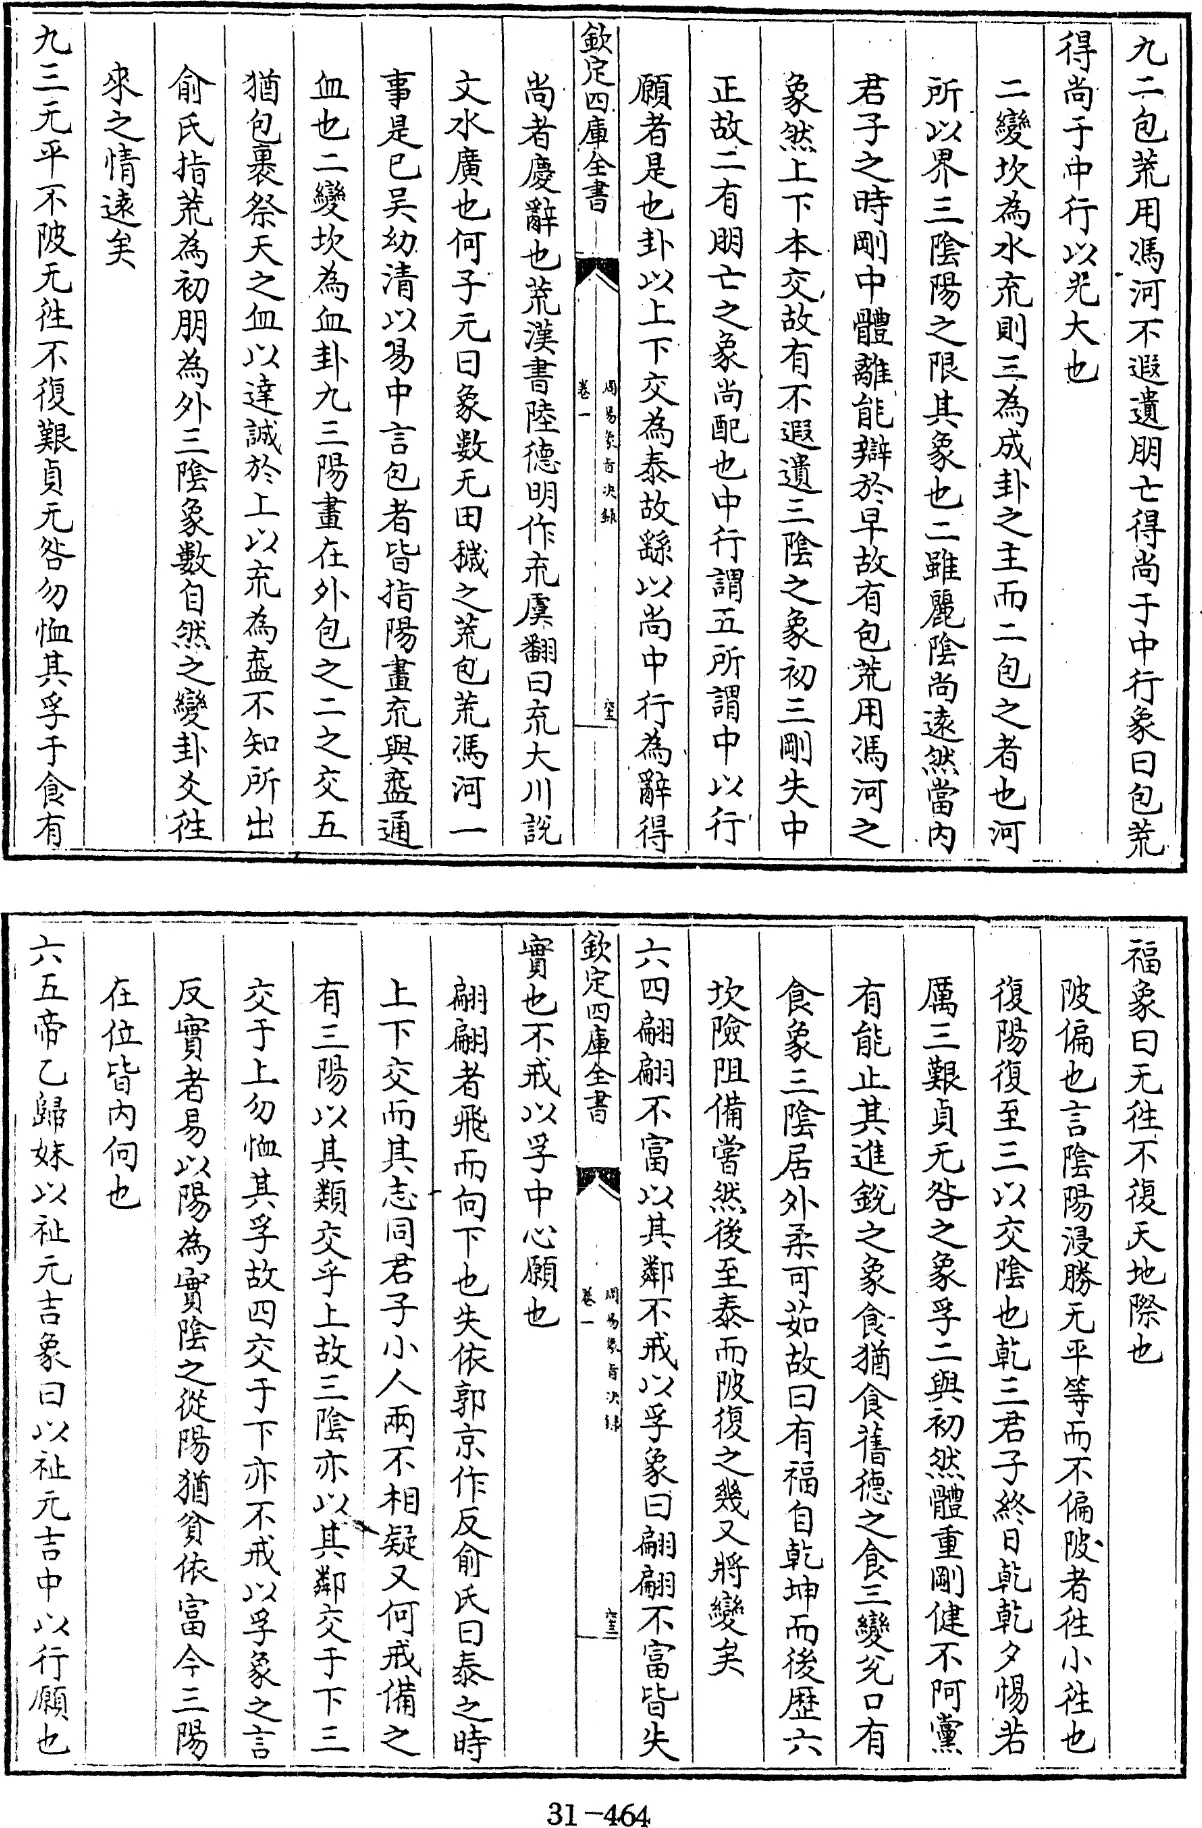 九二包荒用馮河不遐遺朋亡得尚于中行象曰包荒
得尚于中行以光大也
二變坎為水㐬則三為成卦之主而二包之者也河
所以界三陰陽之限其象也二雖麗陰尚遠然當内
君子之時剛中體離能辯於早故有包荒用馮河之
象然上下本交故有不遐遺三陰之象初三剛失中
正故二有朋亡之象尚配也中行謂五所謂中以行
願者是也卦以上下交為泰故繇以尚中行為辭得
欽定四庫全書
周易象旨決録
卷一
尚者慶辭也荒漢書陸德明作㐬虞翻曰㐬大川説
文水廣也何子元曰象數无田穢之荒包荒馮河一
事是已吴幼清以易中言包者皆指陽畫㐬與衁通
血也二變坎為血卦九三陽畫在外包之二之交五
猶包裹祭天之血以達誠於上以㐬為衁不知所出
俞氏指荒為初朋為外三陰象數自然之變卦爻往
來之情遠矣
九三无平不陂无往不復艱貞无咎勿恤其孚于食有
福象曰无往不復天地際也
陂偏也言陰陽浸勝无平等而不偏陂者往小往也
復陽復至三以交陰也乾三君子終日乾乾夕惕若
厲三艱貞无咎之象孚二與初然體重剛健不阿黨
有能止其進鋭之象食猶食舊德之食三變兊口有
食象三陰居外柔可茹故曰有福自乾坤而後歷六
坎險阻備嘗然後至泰而陂復之幾又將變矣
六四翩翩不富以其鄰不戒以孚象曰翩翩不富皆失
欽定四庫全書
周易象旨決録
卷一
實也不戒以孚中心願也
翩翩者飛而向下也失依郭京作反俞氏曰泰之時
上下交而其志同君子小人兩不相疑又何戒備之
有三陽以其類交乎上故三陰亦以其鄰交于下三
交于上勿恤其孚故四交于下亦不戒以孚象之言
反實者易以陽為實陰之從陽猶貧依富今三陽
在位皆内向也
六五帝乙歸妹以祉元吉象曰以祉元吉中以行願也
31-464